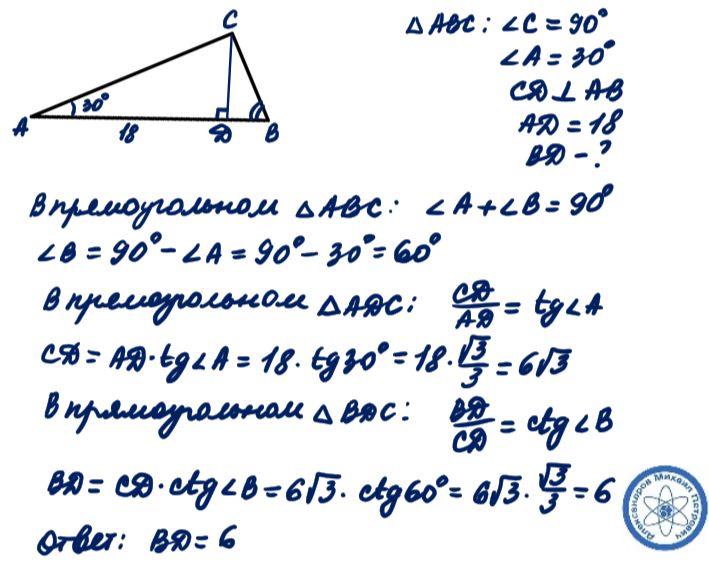 C
△ABC: ∠C = 90°
∠A = 30°
CD ⊥ AB
AD = 18
BD - ?
30°
A
18
D
B
В прямоугольном △ABC: ∠A + ∠B = 90°
∠B = 90° - ∠A = 90° - 30° = 60°
В прямоугольном △ADC: CD/AD = tg∠A
CD = AD · tg∠A = 18 · tg30° = 18 · √3/3 = 6√3
В прямоугольном △BDC: BD/CD = ctg∠B
BD = CD · ctg∠B = 6√3 · ctg60° = 6√3 · √3/3 = 6
Ответ: BD = 6
Александров Михаил Петрович